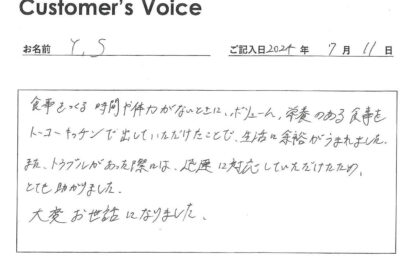 Customer's Voice
お名前 Y,S ご記入日2024年 7月 11日
食事をつくる時間や体力がないときに、ボリューム、栄養のある食事を
トーコーキッチンで出していただけたことで、生活に余裕がうまれました。
また、トラブルがあった際には、迅速に対応していただけたため、
とても助かりました。
大変お世話になりました。